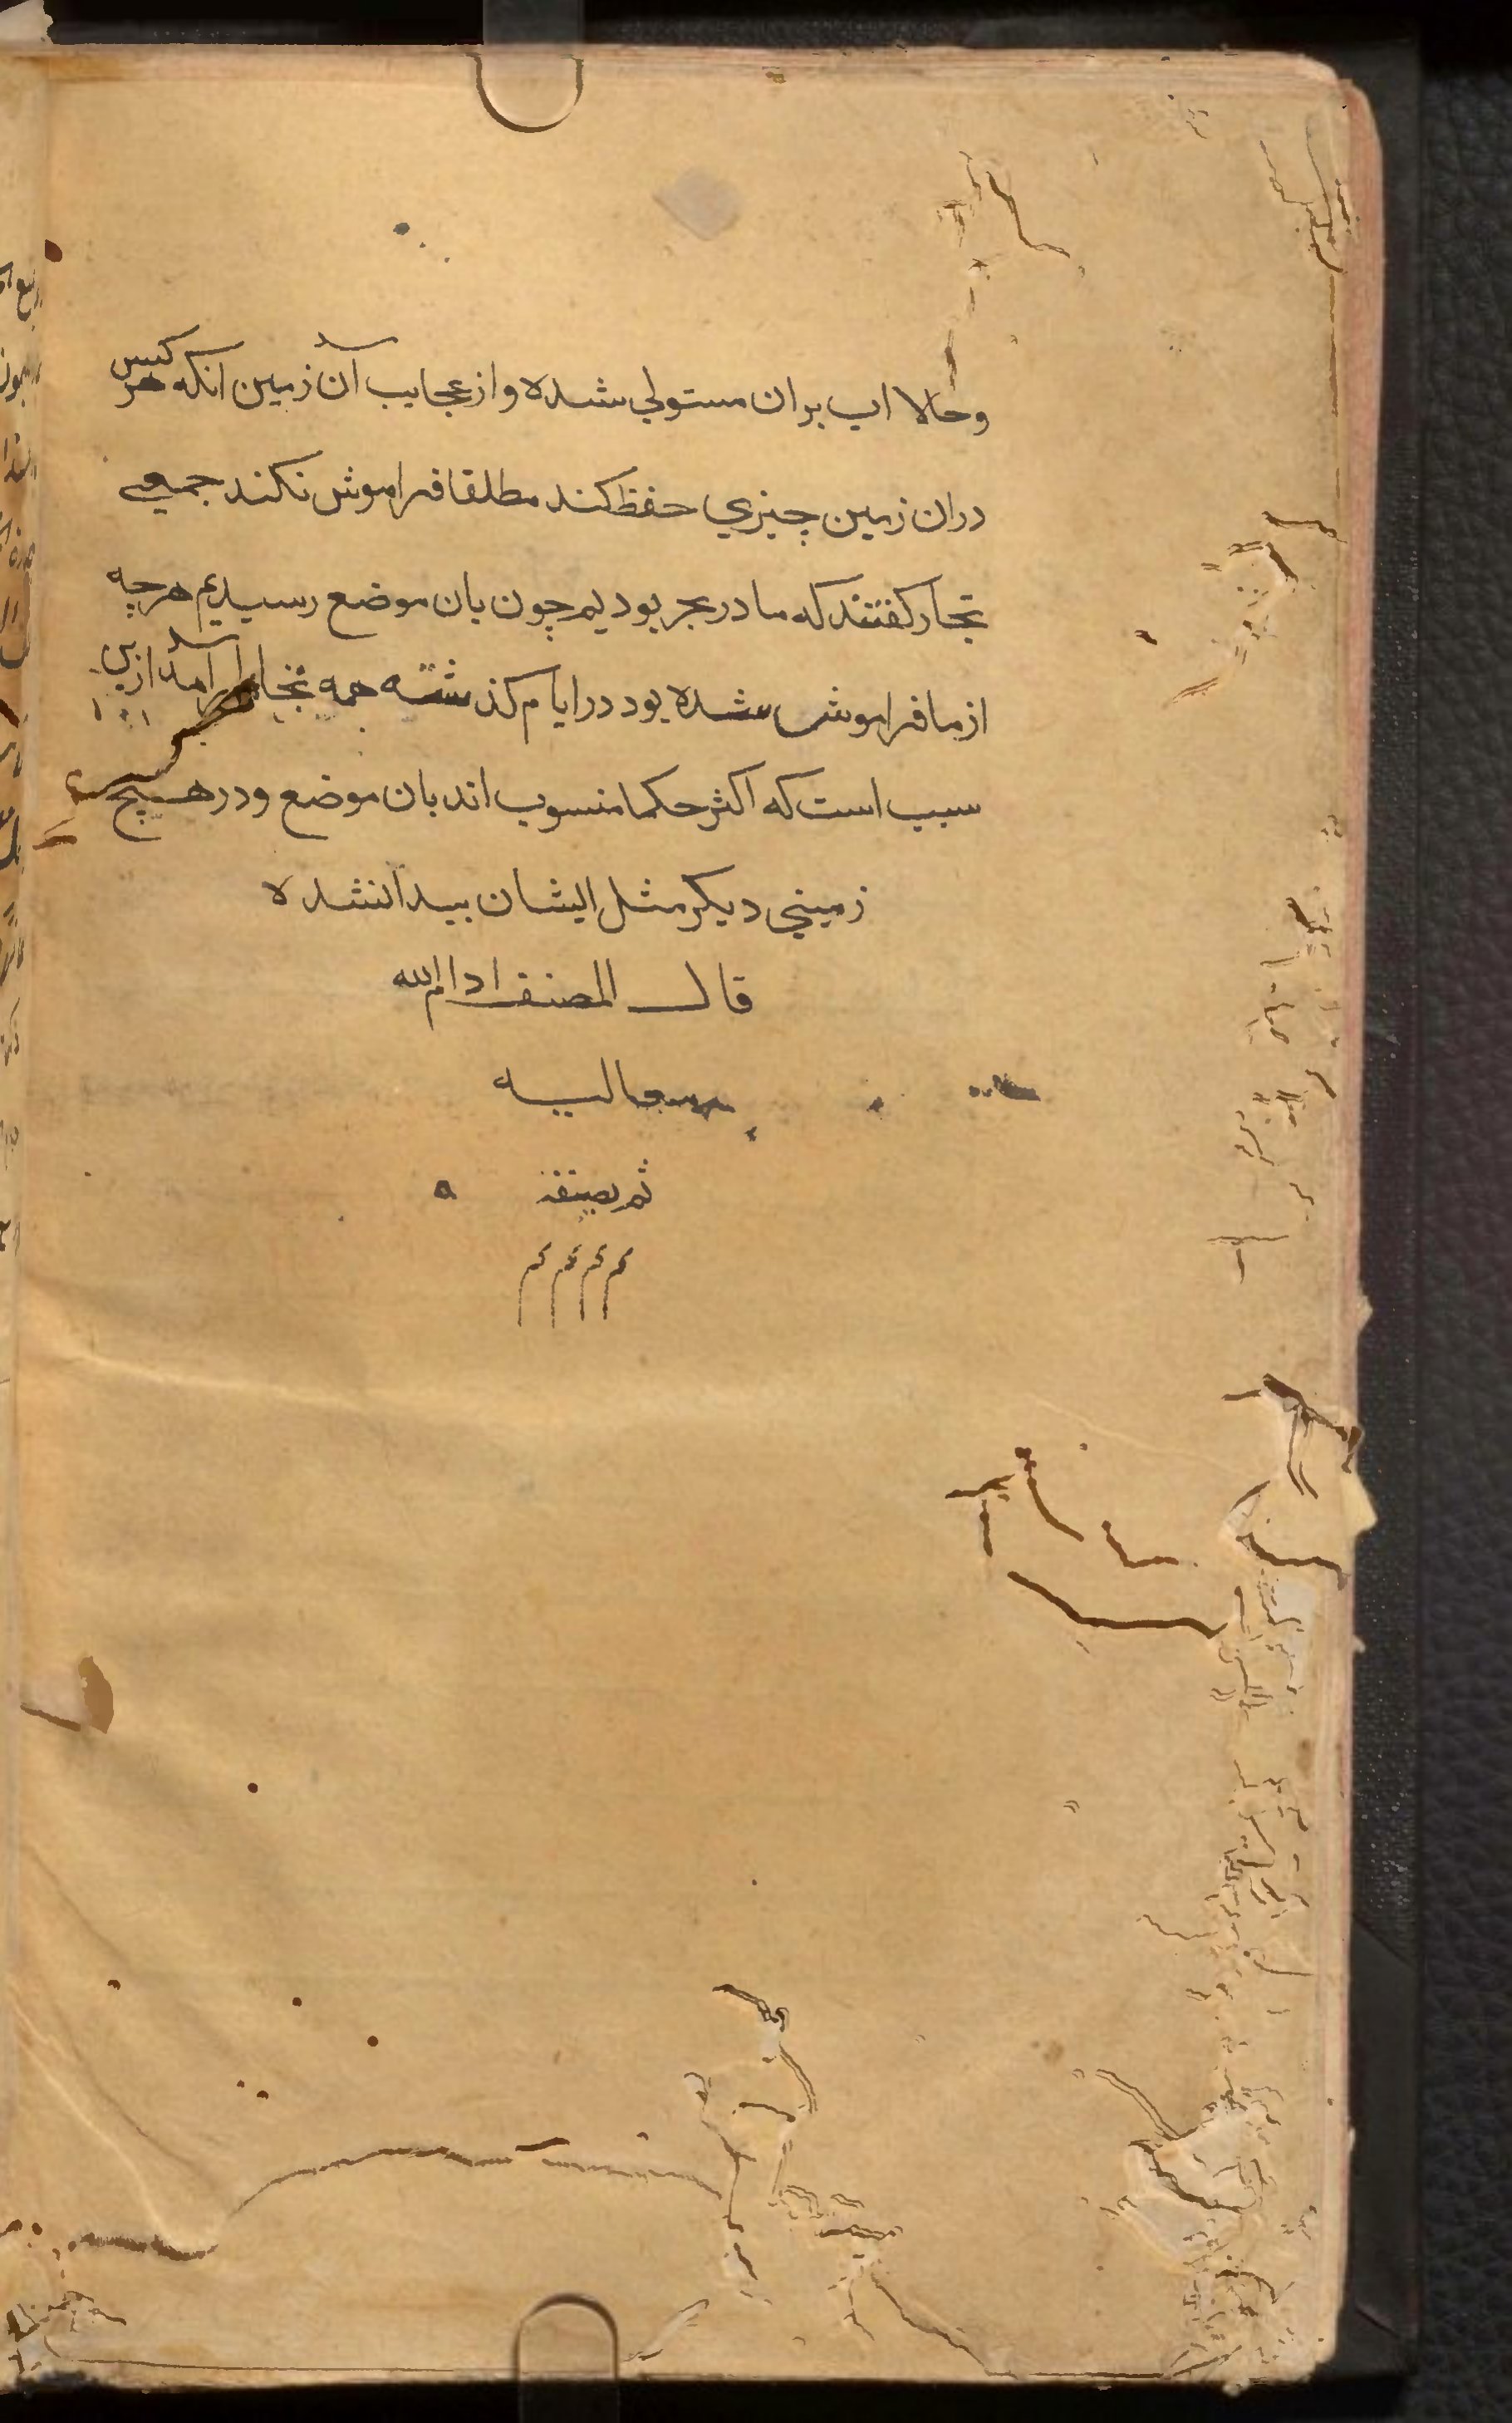 وحالا اب بران مستولي شده و از عجايب آن زمين انكه هر كس
دران زمين چيزي حفظ كند مطلقا فراموش نكند جمعي
تجار كفتند كه ما در بحر بوديم چون بان موضع رسيديم هرچه
از ما فراموش شده بود در ايام كذشته همه بخاطر امد ازين
سبب است كه اكثر حكما منسوب اند بان موضع و در هيچ
زميني ديكر مثل ايشان بيدا نشده
قال المصنف ادام الله
معاليه
تم